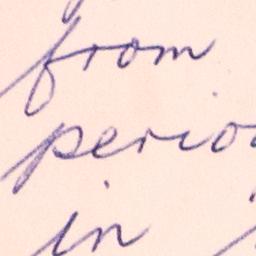 from
perio
in